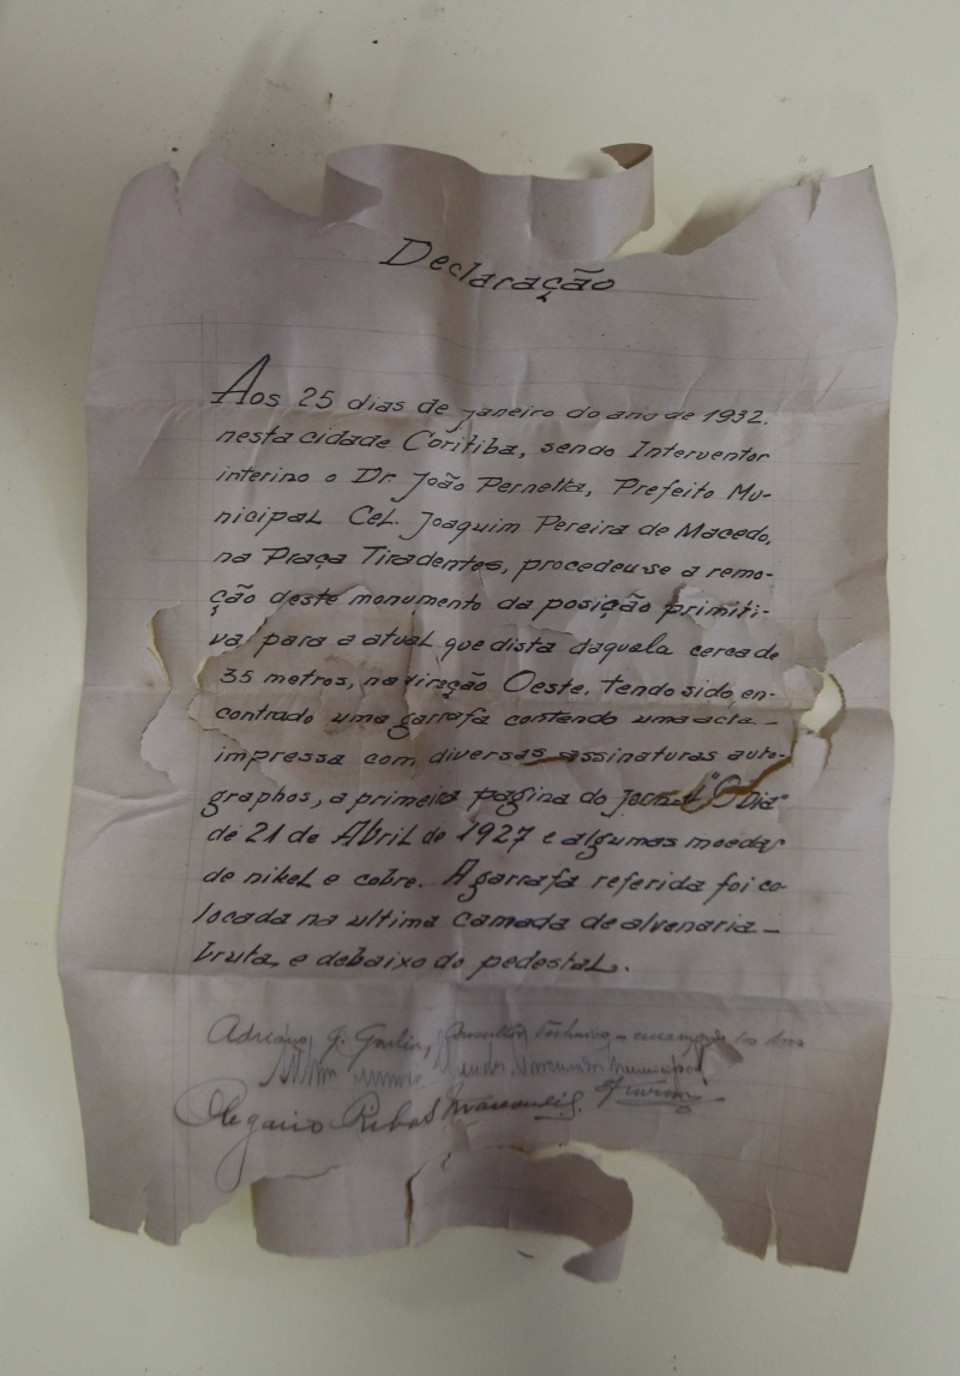 Declaração
Aos 25 dias de janeiro do ano de 1932.
nesta cidade Coritiba, sendo Interventor
interino o Dr. João Pernetta, Prefeito Mu-
nicipal Cel. Joaquim Pereira de Macedo,
na Praça Tiradentes, procedeu-se a remo-
ção deste monumento da posição primiti-
va para a atual que dista daquela cerca de
35 metros, na direção Oeste. Tendo sido en-
contrado uma garrafa contendo uma acta -
impressa com diversas assinaturas auto-
graphos, a primeira pagina do jornal "O Dia"
de 21 de Abril de 1927 e algumas moedas
de nikel e cobre. A garrafa referida foi co-
locada na ultima camada de alvenaria -
bruta, e debaixo do pedestal.
Adriano G. Goulin, Consultor Téchnico
Municipal
Olegario Ribas